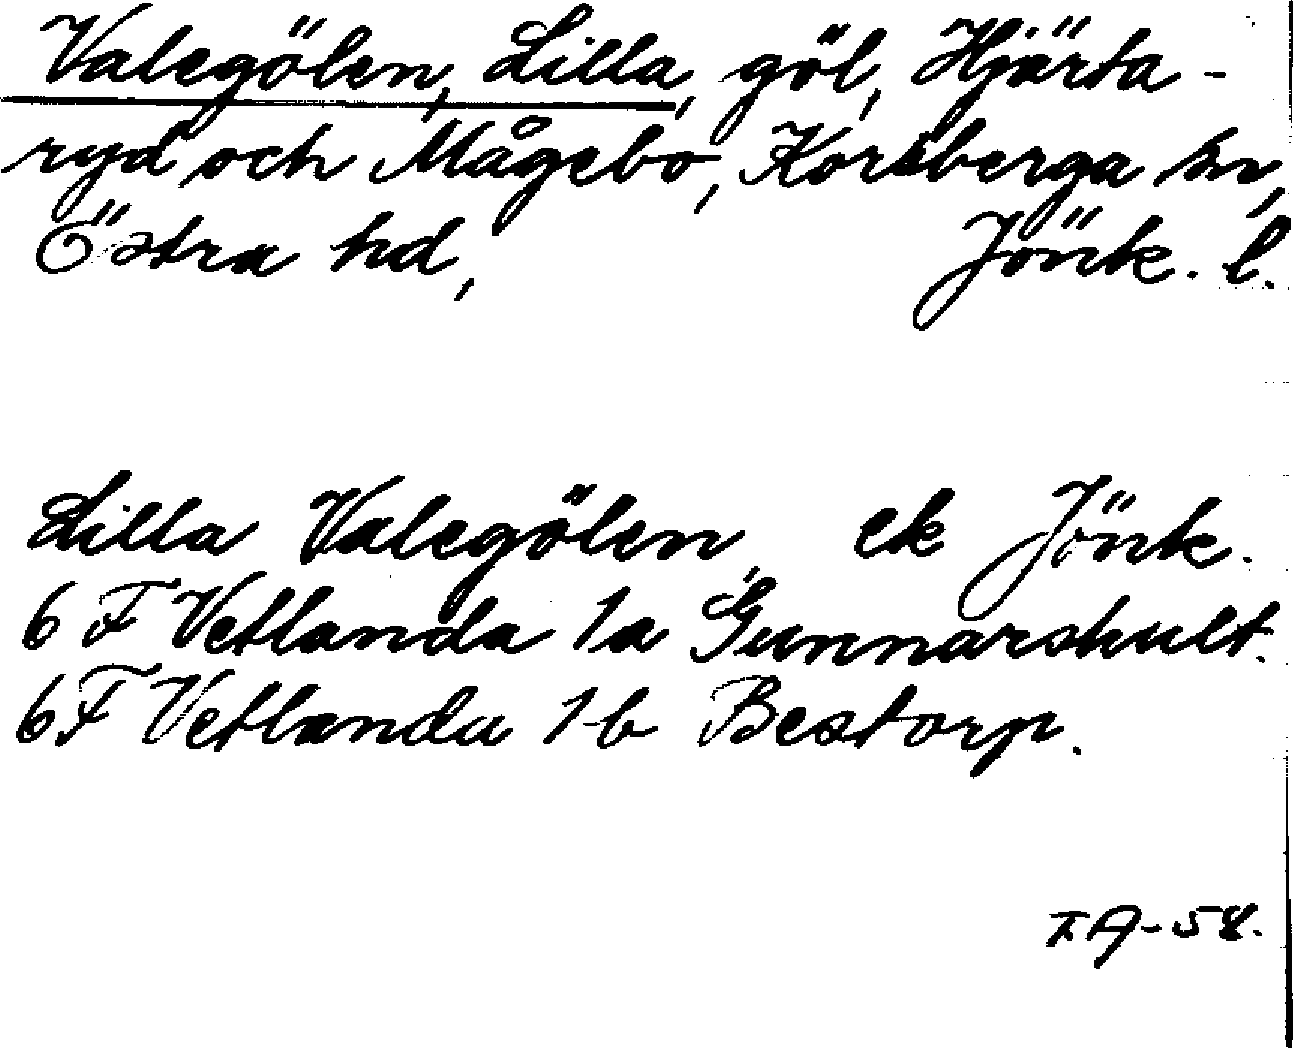 Valegölen, Lilla, göl, Hjärta-
ryd och Mågebo, Korsberga sn,
Östra hd, Jönk. l.
Lilla Valegölen, ek Jönk.
6 F Vetlanda 1a Gunnarskult.
6F Vetlanda 1b Bestorp.